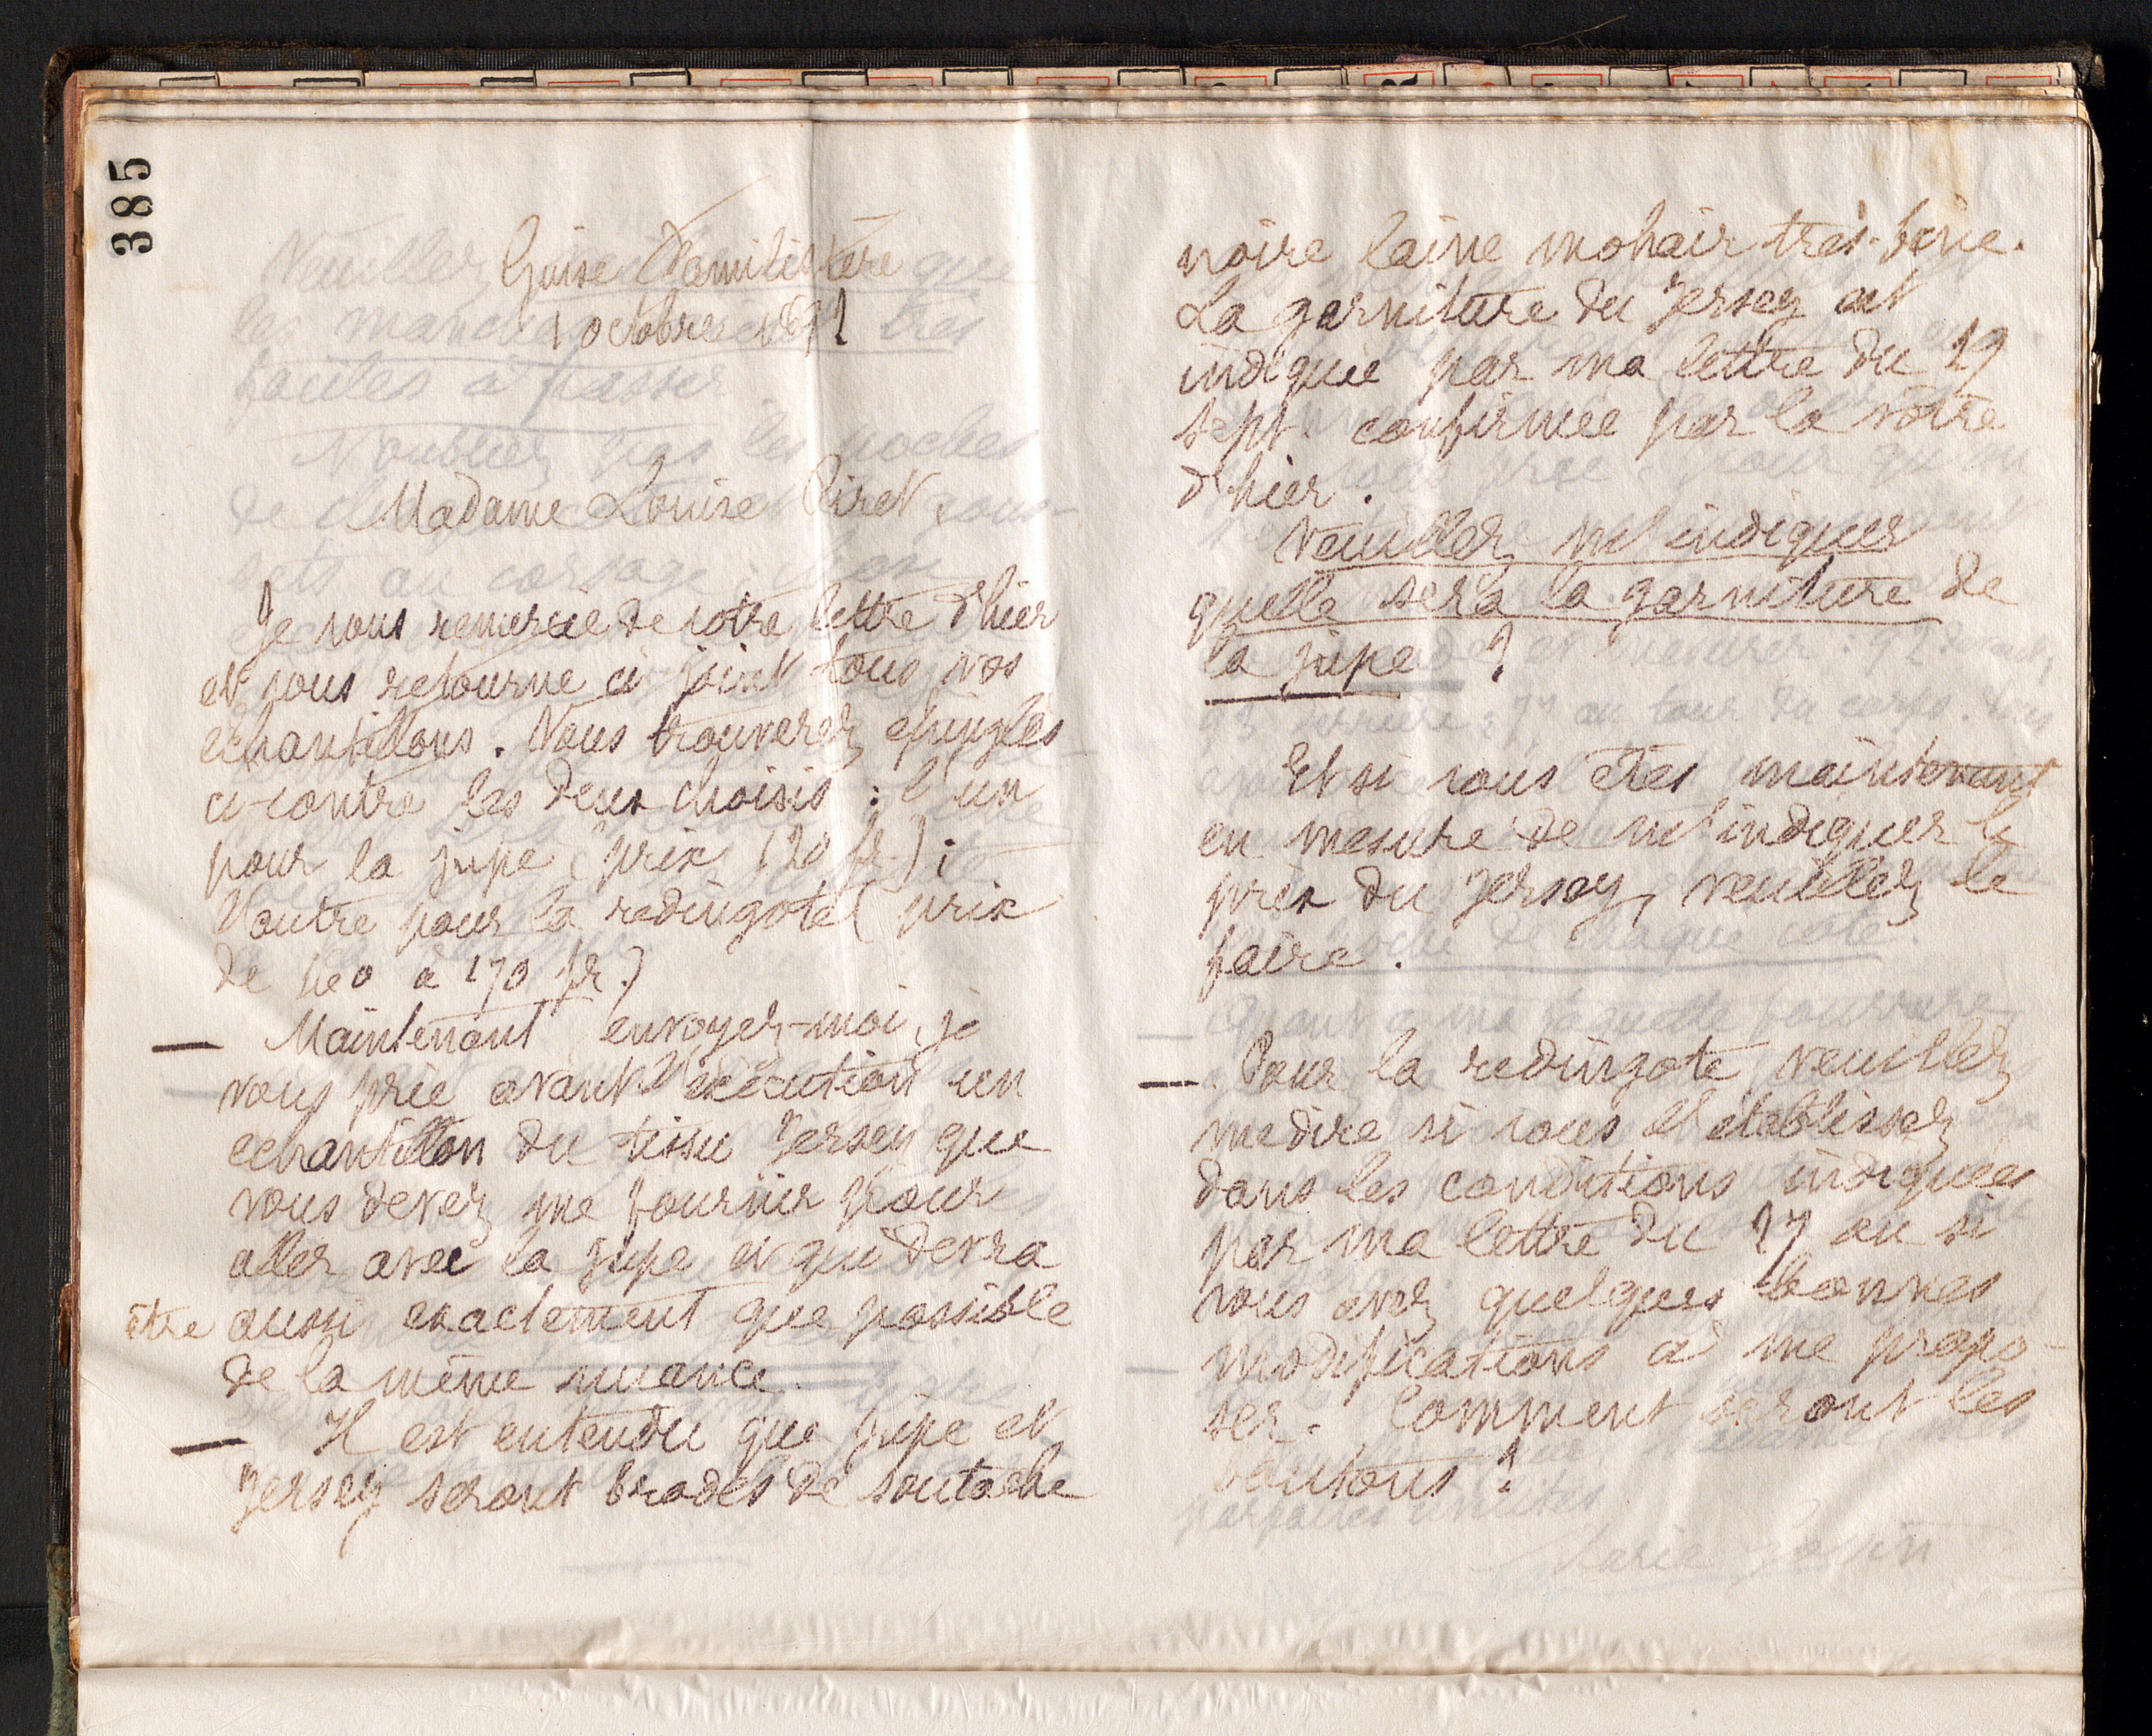 385
Guise Familistère
1 octobre 1892
Madame Louise Piret
Je vous remercie de votre lettre d'hier
et vous retourne ci joint tous vos
échantillons. Vous trouverez épinglés
ci-contre les deux choisis : l'un
pour la jupe (prix 120 fr.) ;
l'autre pour la redingote (prix
de 160 à 170 fr.)
— Maintenant envoyez-moi, je
vous prie avant l'exécution un
echantillon du tissu Jersey que
vous devez me fournir pour
aller avec la jupe et qui devra
être aussi exactement que possible
de la même nuance.
— Il est entendu que jupe et
Jersey seront brodés de soutache
noire laine mohair très-fine.
La garniture du Jersey est
indiquée par ma lettre du 29
sept. confirmée par la vôtre
d'hier.
Veuillez m'indiquer
quelle sera la garniture de
la jupe ?
Et si vous êtes maintenant
en mesure de m'indiquer le
prix du Jersey, veuillez le
faire.
— Pour la redingote, veuillez
me dire si vous l'établissez
dans les conditions indiquées
par ma lettre du 27 ou si
vous avez quelques bonnes
modifications à me propo-
ser. Comment seront les
boutons ?